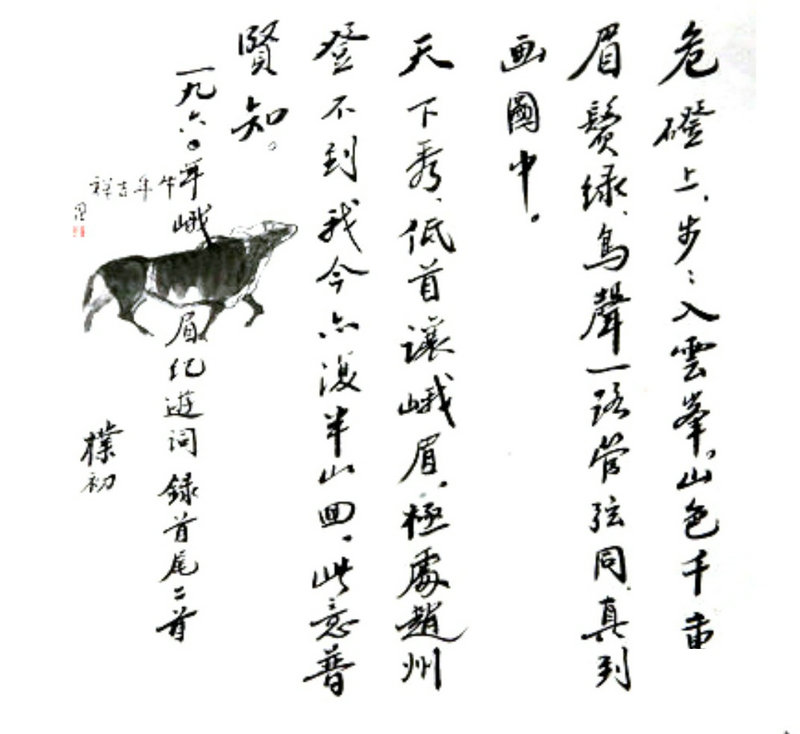 危磴上，步〻入雲峯，山色千重
眉鬓绿，鸟聲一路管弦同，真到
画圖中。
天下秀，低首讓峨眉，極處趙州
登不到，我今亦復半山回，此意普
賢知。
一九六〇年峨眉纪遊词錄首尾二首
樸初
牛年吉祥